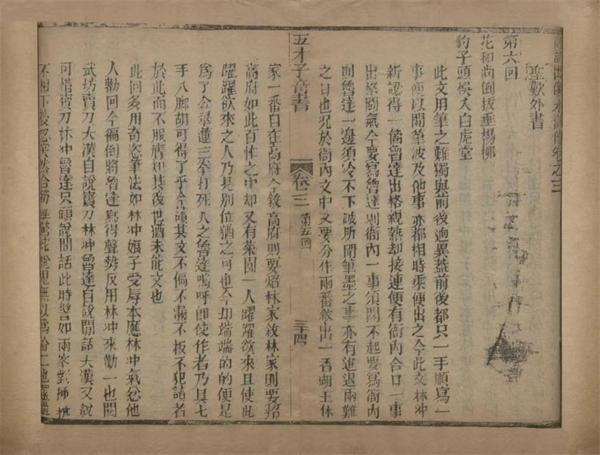 水滸傳卷之三
聖歎外書
第六回
花和尚倒拔垂楊柳
豹子頭悞入白虎堂
此文用筆之難獨與前後迥異葢前後都只一手順寫一
事便以閒筆波及他事亦都相時乘便出之今此文林冲
新認得一個魯達出格親熱却接連便有衙內合口一事
出格鬭氣今要寫魯達則衙內一事須閣不起要寫衙內
則魯達一邊須冷不下誠所謂筆墨之事亦有進退兩難
之日也況於衙內文中又要分作兩番敘出一番
五才子奇書
卷三
第五回
三十四
家一番自在高府今敘高府則要照林家敘林家則要照
高府如此百忙之中却又有菜園一人躍躍欲來且使此
躍躍欲來之人乃是別位猶之可也今却端端的的便是
爲了金翠蓮三拳打死人之魯達嗚呼即使作者乃具七
手八脚胡可得了乎今讀其文不偏不漏不板不犯讀者
於此而不服膺知其後世猶未能文也
此回多用奇恣筆法如林冲娘子受辱本應林冲氣忿他
人勸回今偏倒將魯達寫得聲勢反用林冲來勸一也閱
武坊賣刀大漢自說寶刀林冲魯達自說閒話大漢又說
可惜寶刀林冲魯達只顧說閒話此時譬如兩峰對插
不相下後忽